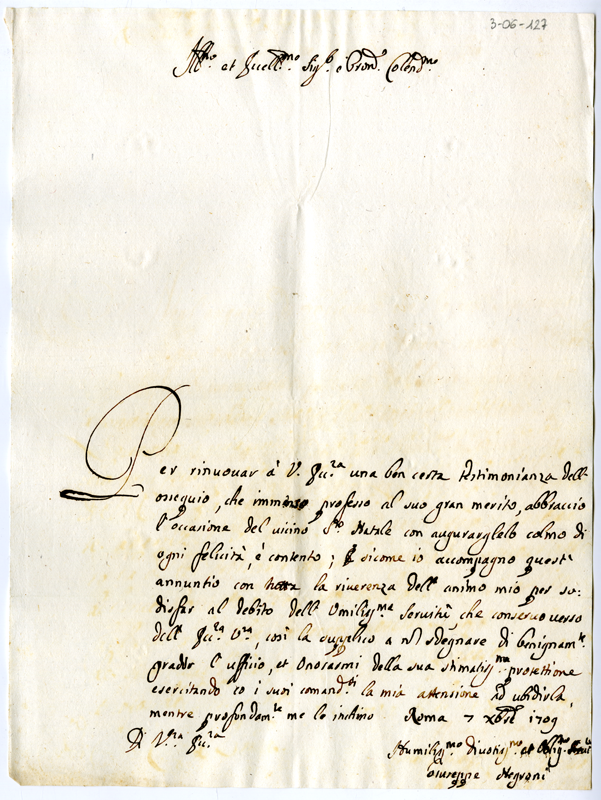 3-06-127
Ill.mo et Ecell.mo Sig.r e Pron. Colend.mo
Per rinuouar à V. Ecc.za una ben certa testimonianza dell
ossequio, che immenso professo al suo gran merito, abbraccio
l'occasione del vicino S.to Natale con augurarglelo colmo di
ogni felicità, è contento; E sicome io accompagno quest'
annuntio con tutta la riuerenza dell' animo mio per so:
disfar al debito dell' Umiliss.ma Seruitù, che conseruo verso
dell' Ecc.za V.ra, così la supplico a nō sdegnare di benignam.te
gradir l'uffitio, et onorarmi della sua stimatiss.ma protettione
esercitando co i suoi comand.ti la mia attensione ad ubidirla,
mentre profondam.te me le inchino Roma 7 Xbre 1709
Di V.ra Ecc.za
Humiliss.mo Diuotiss.mo et Oblig.mo
Giuseppe Negroni